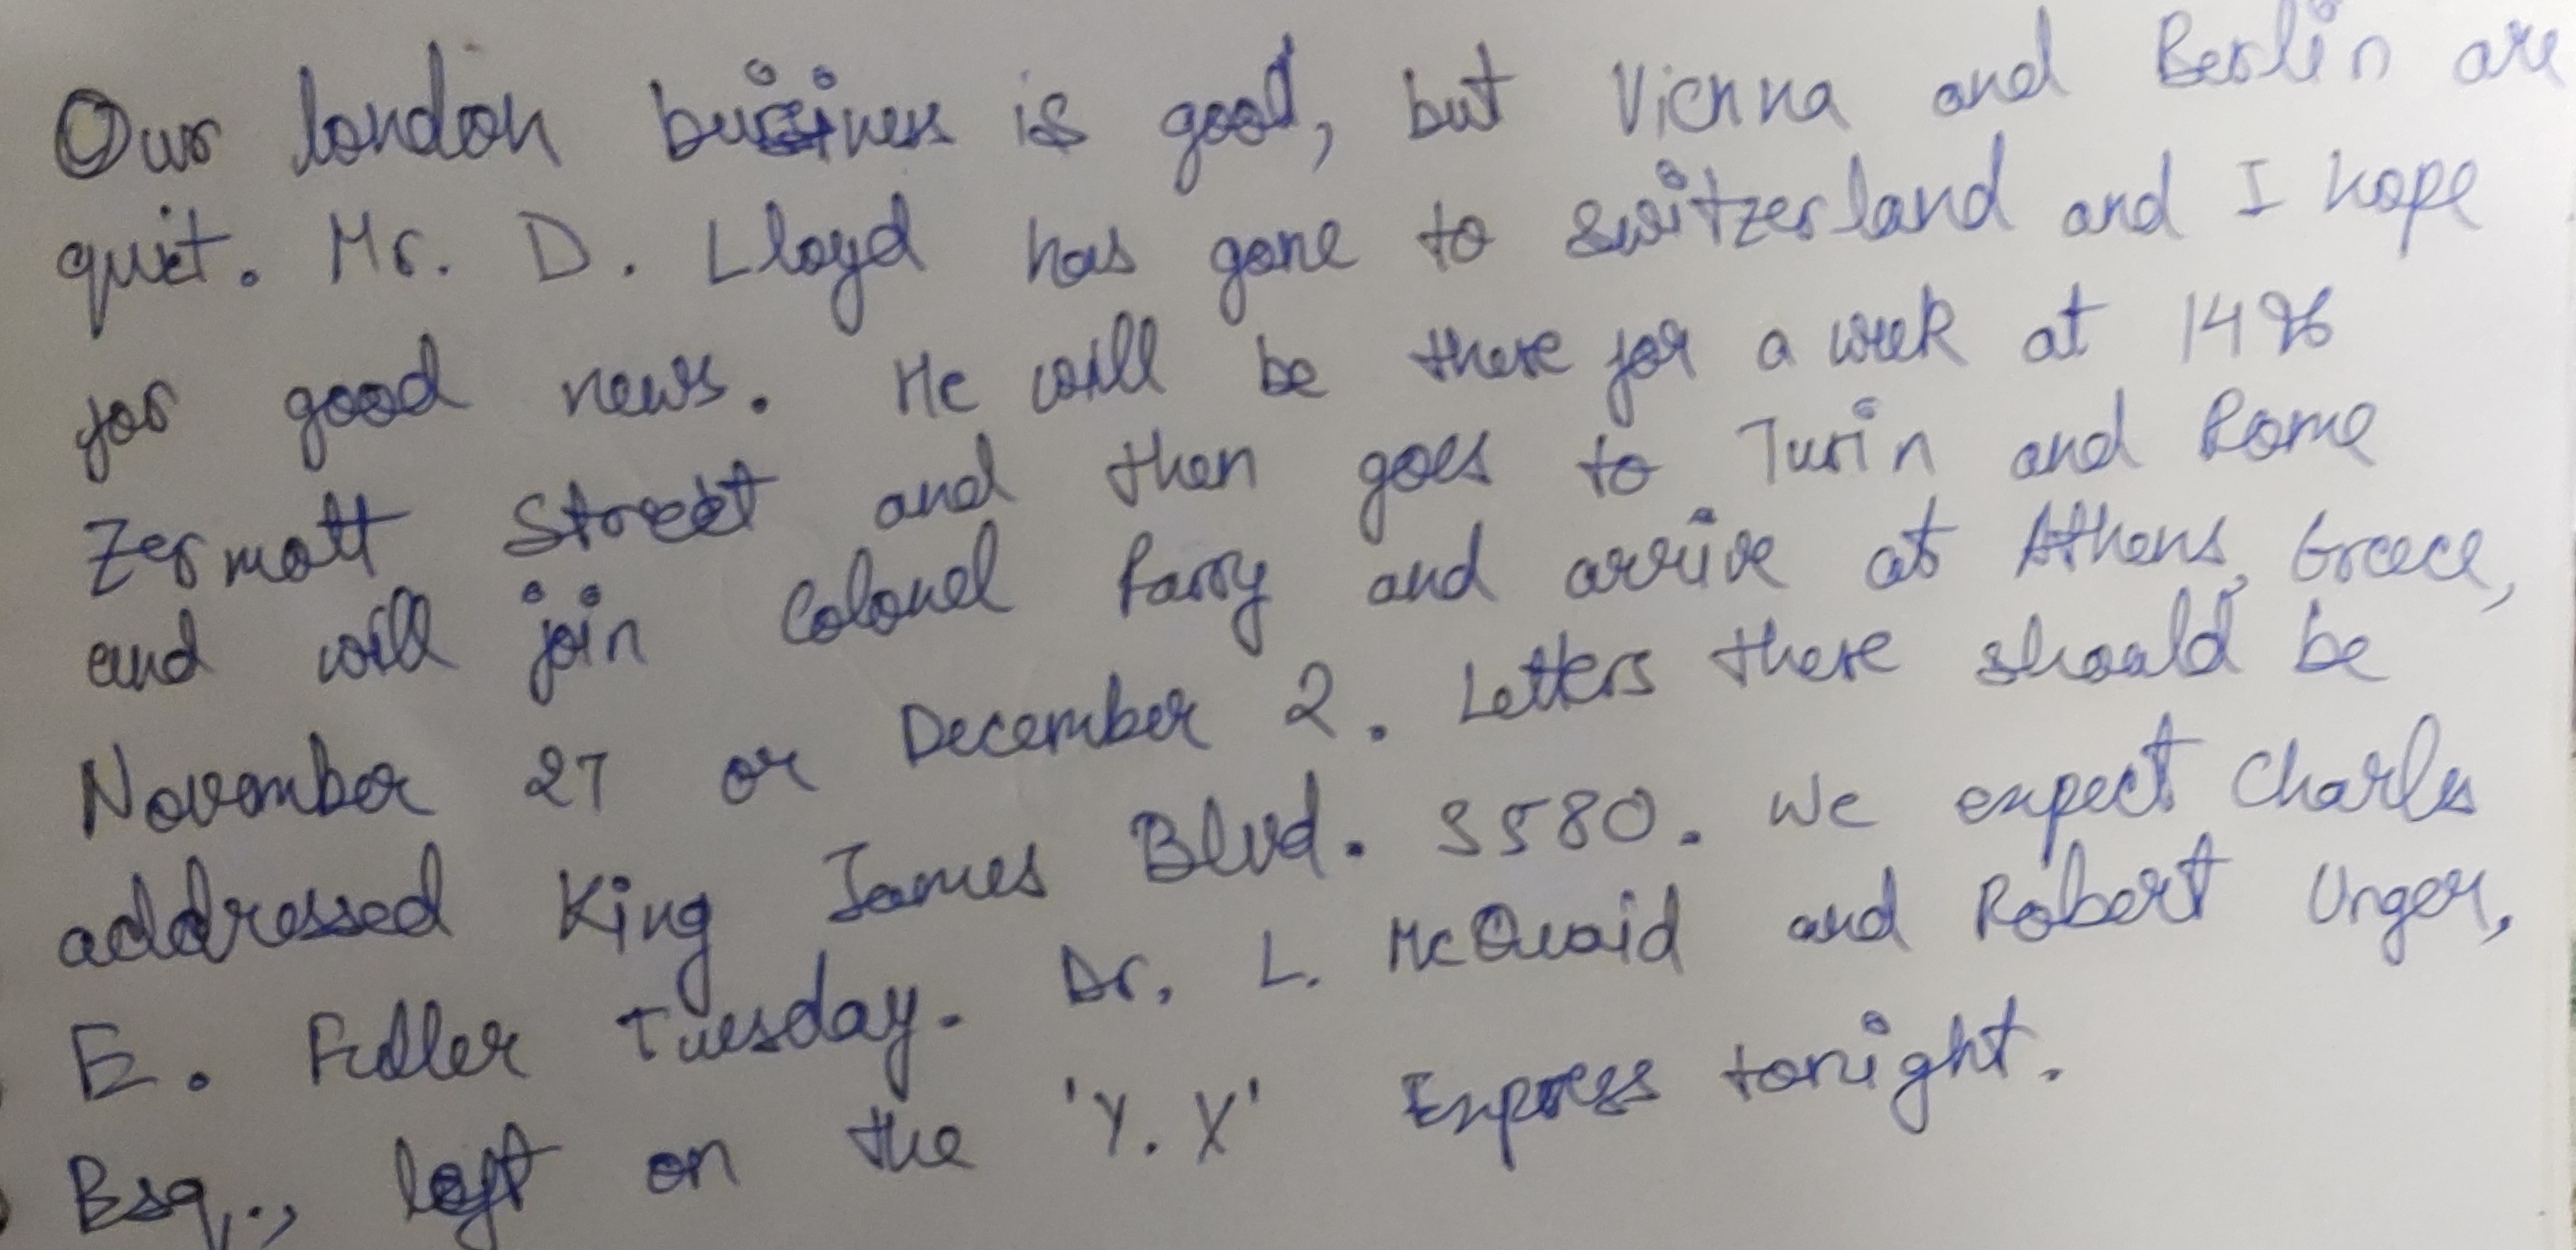 Our london business is good, but Vienna and Berlin are
quiet. Mr. D. Lloyd has gone to Switzerland and I hope
for good news. He will be there for a week at 1496
Zermott Street and then goes to Turin and Rome
and will join Colonel Parry and arrive at Athens, Greece,
November 27 or December 2. Letters there should be
addressed King James Blvd. 3580. We expect Charles
E. Fuller Tuesday. Dr. L. McQuaid and Robert Unger,
Esq., left on the 'Y.X' Express tonight.